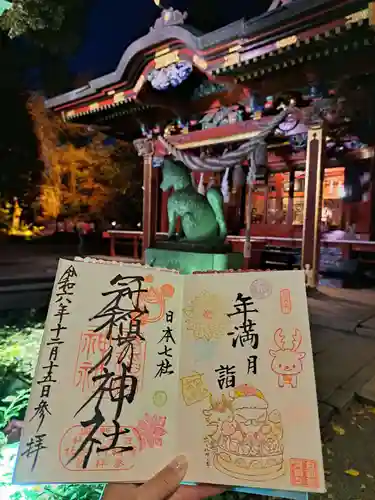 年満月
詣
日本七社
冠稲荷神社
令和六年十二月十五日参拝